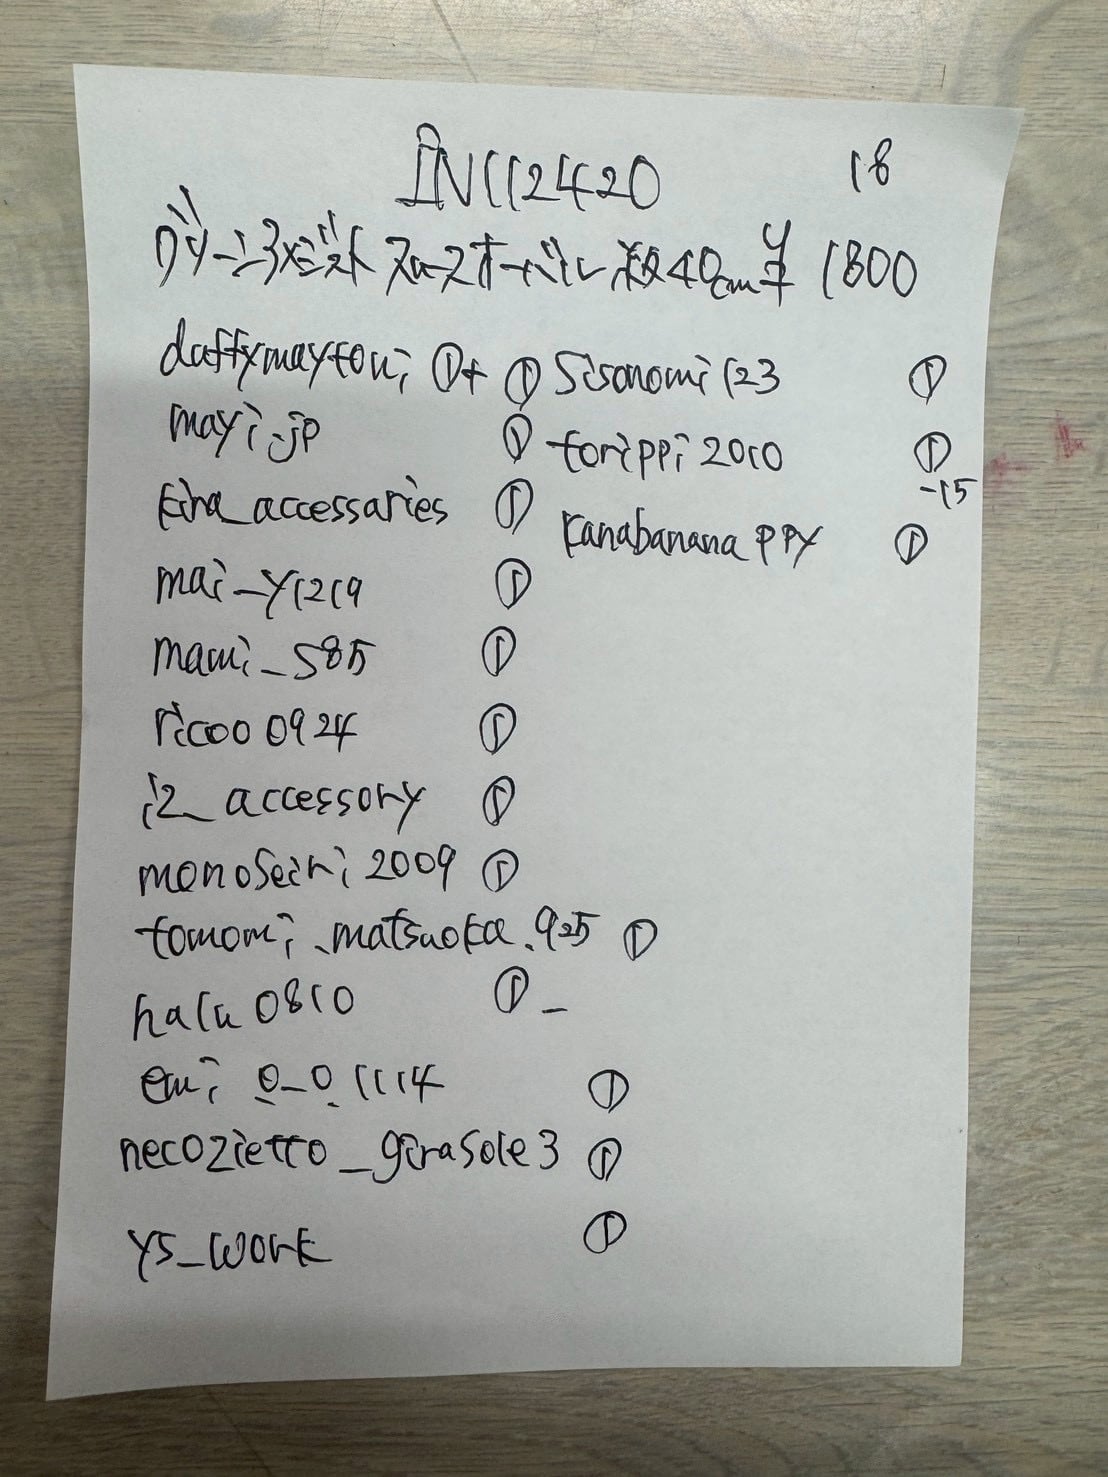 IN112420 18
グリーン3×ミックス ルースオーバル 約40cm半 1800
daffymaytoni ①+ ①
mayi.jp ①
kira_accessaries ①
mai_y1219 ①
mami_585 ①
ricoo0924 ①
iz_accessory ①
monoseiri2009 ①
tomomi.matsuoka.925 ①
halu0810 ① -
emi_0_0_1114 ①
necozietto_girasole3 ①
ys_work ①
sisonomi123 ①
torippi2010 ①
-15
kanabanana ppy ①